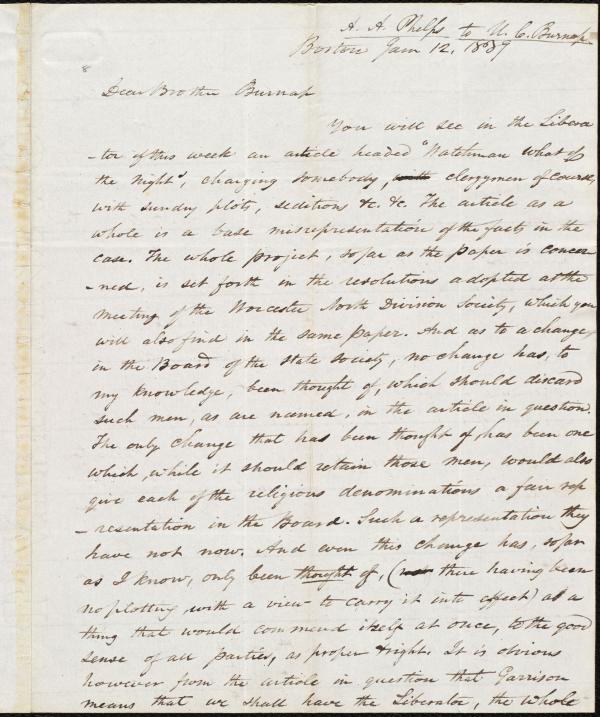 A. A. Phelps to U. C. Burnap
Boston Jan 12, 1839
Dear Brother Burnap
You will see in the Libera
-tor of this week an article headed "Watchman what of
the Night", charging somebody, clergymen of course,
with sundry plots, seditions &c. &c. The article as a
whole is a base misrepresentation of the facts in the
case. The whole project, so far as the paper is concer
-ned, is set forth in the resolutions adopted at the
meeting of the Worcester North Division Society, which you
will also find in the same paper. And as to a change
in the Board of the State Society, no change has, to
my knowledge, been thought of, which should discard
such men, as are named, in the article in question.
The only change that has been thought of, has been one
which, while it should retain those men, would also
give each of the religious denominations a fair rep
-resentation in the Board. Such a representation they
have not now. And even this change has, so far
as I know, only been thought of, (there having been
no plotting with a view to carry it into effect) as a
thing that would commend itself at once, to the good
sense of all parties, as proper & right. It is obvious
however from the article in question that Garrison
means that we shall have the Liberator, the whole